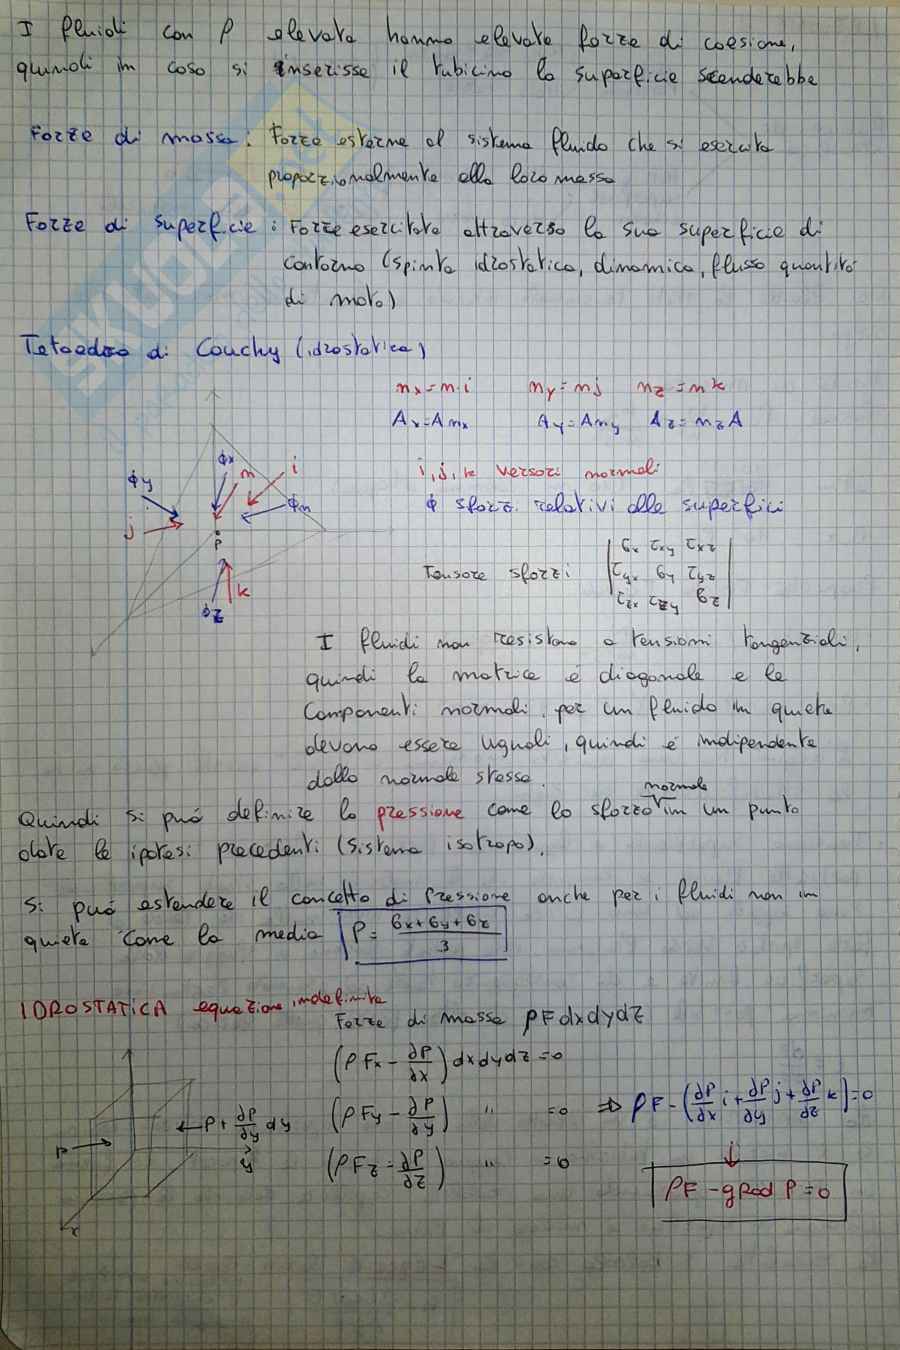 I fluidi con ρ elevata hanno elevate forze di coesione,
quindi in caso si inserisse il tubicino la superficie scenderebbe
Forze di massa: Forze esterne al sistema fluido che si esercita
proporzionalmente alla loro massa
Forze di superficie: Forze esercitate attraverso la sua superficie di
contorno (spinta idrostatica, dinamica, flusso quantità
di moto)
Tetaedro di Cauchy (idrostatica)
nx = n·i   ny = nj   nz = nk
Ax = Anx   Ay = Any   Az = nzA
i, j, k versori normali
ϕ sforzi relativi alle superfici
ϕx
n
i
ϕy
ϕn
j
P
k
ϕz
Tensore sforzi
σx τxy τxz
τyx σy τyz
τzx τzy σz
I fluidi non resistono a tensioni tangenziali,
quindi la matrice é diagonale e le
componenti normali, per un fluido in quiete
devono essere uguali, quindi é indipendente
dalla normale stessa.
Quindi si può definire la pressione come lo sforzo normale in un punto
date le ipotesi precedenti (sistema isotropo).
Si può estendere il concetto di Pressione anche per i fluidi non in
quiete come la media P = (σx + σy + σz) / 3
IDROSTATICA equazione indefinita
Forze di massa ρF dxdydz
(ρFx - ∂P/∂x) dxdydz = 0
(ρFy - ∂P/∂y) " = 0 ⇒ ρF - (∂P/∂x i + ∂P/∂y j + ∂P/∂z k) = 0
(ρFz - ∂P/∂z) " = 0
ρF - grad P = 0
P
P + ∂P/∂y dy
y
x